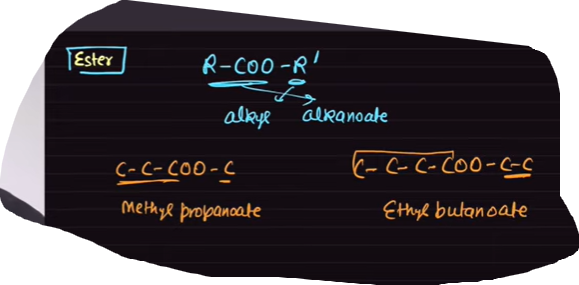 Ester
R-COO-R'
alkyl alkanoate
C-C-COO-C
Methyl propanoate
C-C-C-COO-C-C
Ethyl butanoate